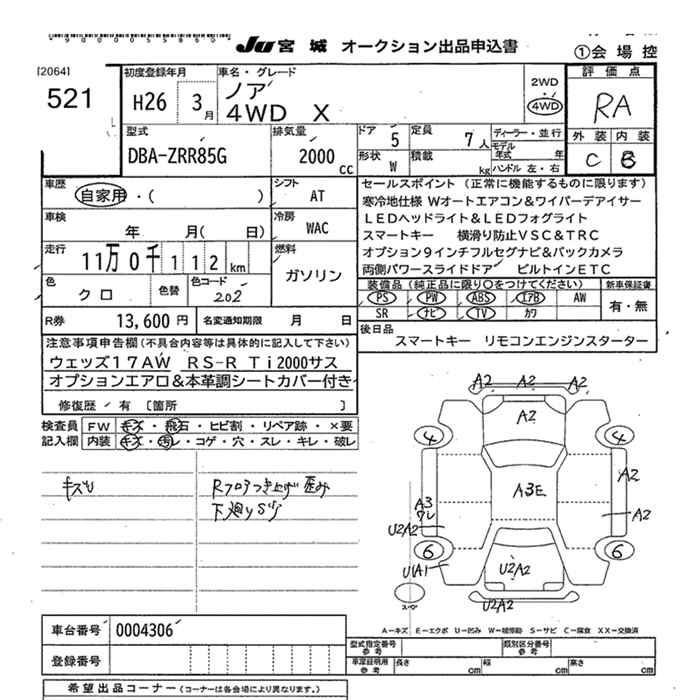 JU 宮城 オークション出品申込書
①会場控
[2064]
521
初度登録年月
H26 3月
車名・グレード
ノア
4WD X
2WD
4WD
評価点
RA
外装 内装
C B
型式
DBA-ZRR85G
排気量
2000 cc
ドア 5
定員 7人
形状 W
積載 kg
ディーラー・並行
モデル年式 年
ハンドル 左・右
車歴
自家用・( )
シフト
AT
車検
年 月( 日)
冷房
WAC
走行
11万0千112km
燃料
ガソリン
色
クロ
色替
色コード
202
R券 13,600円
名変通知期限 月 日
セールスポイント (正常に機能するものに限ります)
寒冷地仕様 Wオートエアコン&ワイパーデアイサー
LEDヘッドライト&LEDフォグライト
スマートキー 横滑り防止VSC&TRC
オプション9インチフルセグナビ&バックカメラ
両側パワースライドドア ビルトインETC
装備品(純正品に限り○をつけてください)
新車保証書
PS PW ABS エアB AW
SR ナビ TV カワ
有・無
後日品
スマートキー リモコンエンジンスターター
注意事項申告欄(不具合内容等は具体的に記入して下さい)
ウェッズ17AW RS-R Ti2000サス
オプションエアロ&本革調シートカバー付き
修復歴/有 [箇所 ]
検査員記入欄
FW キズ・飛石・ヒビ割・リペア跡・×要
内装 キズ・汚レ・コゲ・穴・スレ・キレ・破レ
キズ
Rフロアつき上げ歪み
下廻りSり
A2 A2 A2
A2
4 4
A3E
A2
A3
ワレ
A2
U2A2
6 6
U1A1
U2A2
U2A2
スペア
A-キズ E-エクボ U-凹み W-補修跡 S-サビ C-腐食 XX-交換済
車台番号 0004306
登録番号
型式指定番号 参考
類別区分番号 参考
車庫証明用 参考
長さ cm
幅 cm
高さ cm
希望出品コーナー(コーナーは各会場により異なります。)